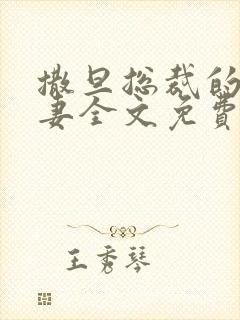 撒旦总裁的
妻全文免费
王秀琴